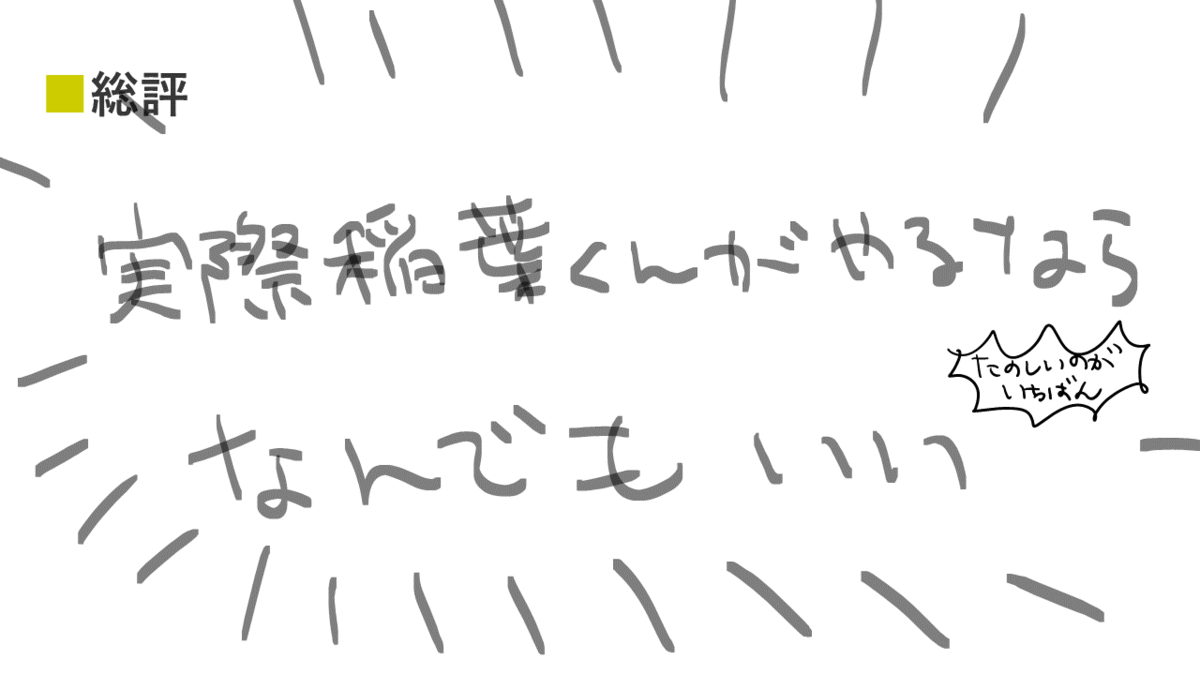 ■総評
実際稲葉くんがやるなら
たのしいのが
いちばん
なんでもいい